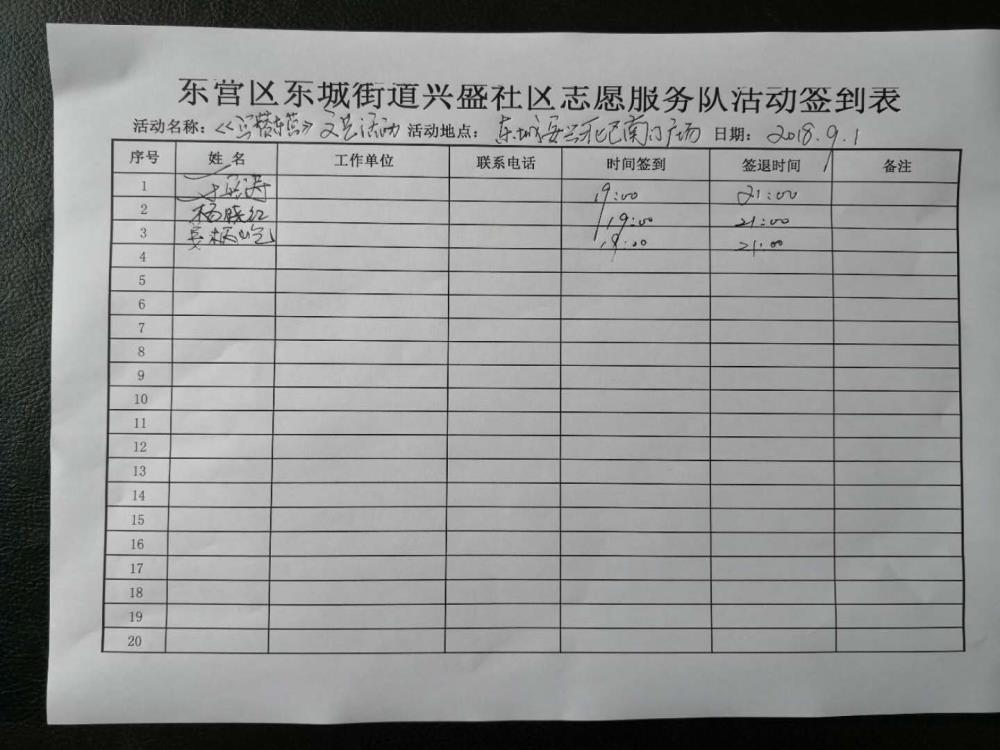 东营区东城街道兴盛社区志愿服务队活动签到表
活动名称：《 》文艺活动 活动地点： 东城 南门广场 日期： 2018.9.1
序号 姓名 工作单位 联系电话 时间签到 签退时间 备注
1 19:00 21:00
2 杨晓红 19:00 21:00
3 19:00 21:00
4
5
6
7
8
9
10
11
12
13
14
15
16
17
18
19
20